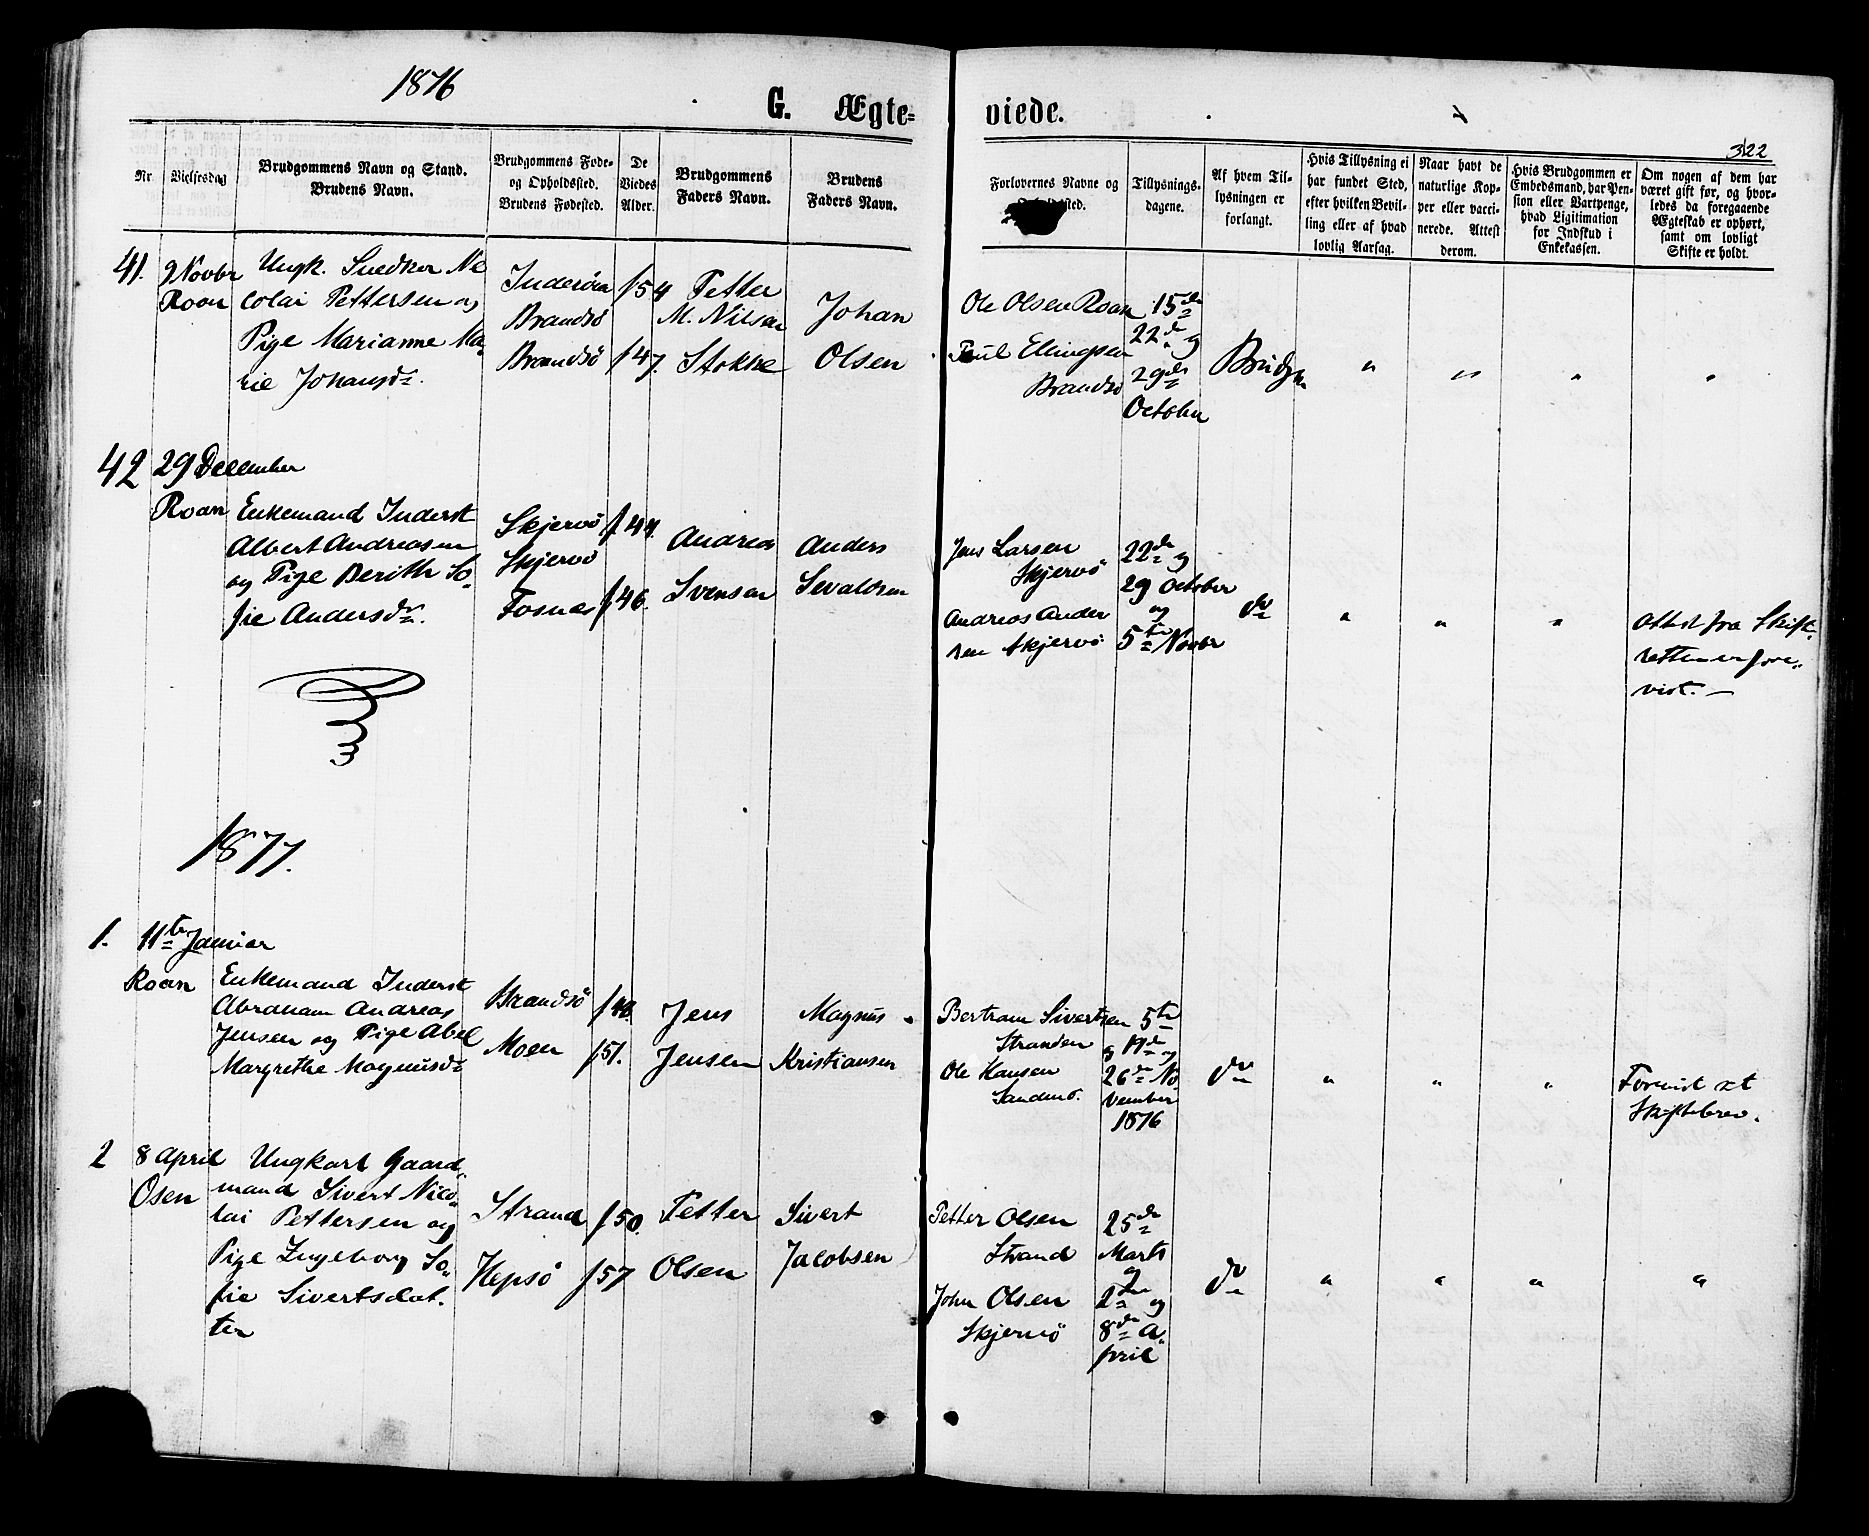 1876
G. Ægte=
viede.
322
Nr.
Vielsesdag
Brudgommens Navn og Stand.
Brudens Navn.
Brudgommens Føde-
og Opholdssted.
Brudens Fødested.
De
Viedes
Alder.
Brudgommens
Faders Navn.
Brudens
Faders Navn.
Forlovernes Navne og
Tillysnings-
dagene.
Af hvem Til-
lysningen er
forlangt.
Hvis Tillysning ei
har fundet Sted,
efter hvilken Bevil-
ling eller af hvad
lovlig Aarsag.
Naar havt de
naturlige Kop-
per eller vacci-
nerede. Attest
derom.
Hvis Brudgommen er
Embedsmand, har Pen-
sion eller Vartpenge,
hvad Legitimation
for Indskud i
Enkekassen.
Om nogen af dem har
været gift før, og hvor-
ledes da foregaaende
Ægteskab er ophørt,
samt om lovligt
Skifte er holdt.
41.
9 Novbr
Roan
Ungk. Snedker Ni
colai Pettersen og
Pige Marianne Ma-
rie Johansdr.
Inderöen
Brandsö
Brandsö
f 54
f 47.
Petter
M. Nilsen
Stokke
Johan
Olsen
Ole Olsen Roan
Poul Ellingsen
Brandsö
15de
22de og
29de
October
Brudgm
" " " "
42
29 December
Roan
Enkemand Inderst
Albert Andreasen
og Pige Berith So-
fie Andersdr.
Skjervö
Skjervö
Fosnes
f 44.
f 46.
Andreas
Svensen
Anders
Sevaldsen
Jens Larsen
Skjervö
Andreas Ander
sen Skjervö
22de og
29 October
og
5te Novbr
do
" " "
Attest fra Skift-
retten er fore-
vist. —
1877.
1.
11te Januar
Roan
Enkemand Inderst
Abraham Andreas
Jensen og Pige Abel
Margrethe Magnusdr
Brandsö
Moen
f 48.
f 51.
Jens
Jensen
Magnus
Kristiansen
Bertram Sivertsen
Stranden
Ole Hansen
5te
og 19de og
26de No
vember
1876
do
" " "
Forevist at
Skiftebrev.
2
8 April
Osen
Ungkarl Gaard-
mand Sivert Nico-
lai Pettersen og
Pige Ingeborg So-
fie Sivertsdat-
ter
Strand
Hepsö
f 50.
f 57
Petter
Olsen
Sivert
Jacobsen
Petter Olsen
Strand
John Olsen
Skjervö
25de
Marts
og
2den og
8de A-
pril
do
" " " "